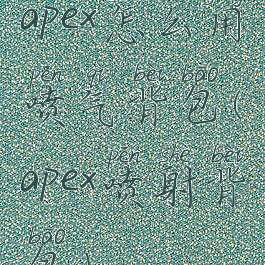 apex怎么用
pēn qì bèi bāo
喷气背包(
pēn shè bèi
apex喷射背
bāo
包)